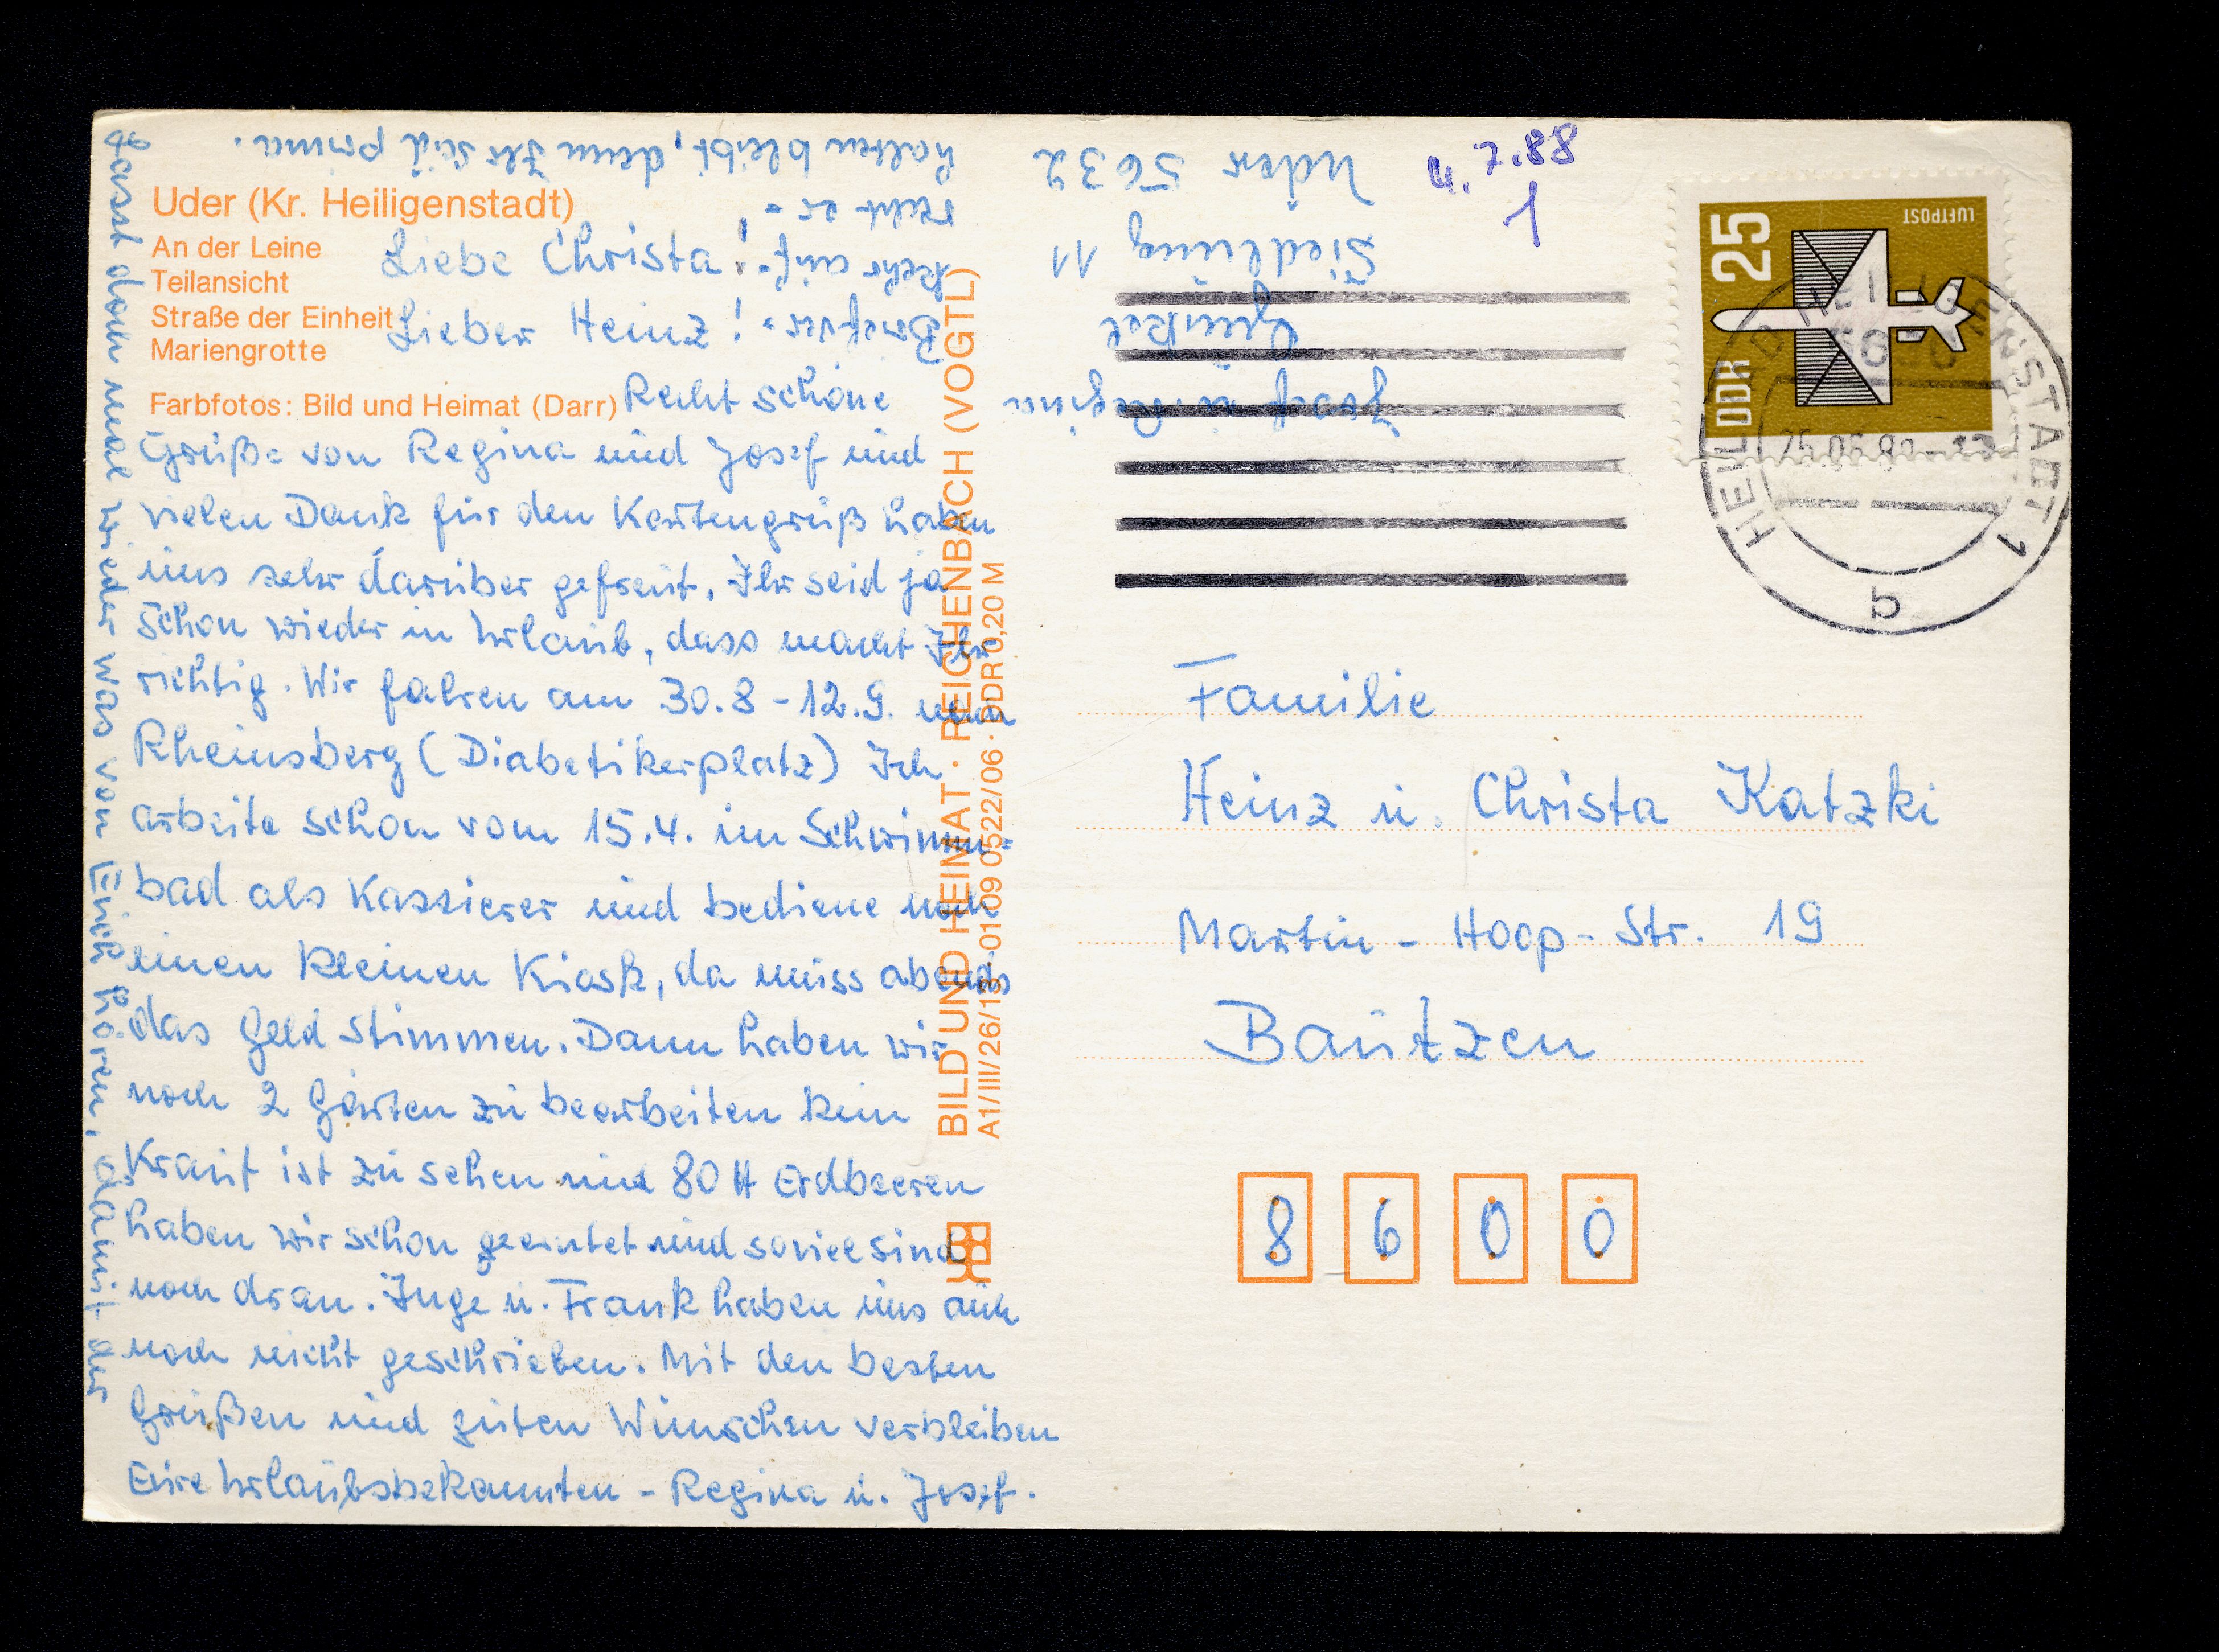 Uder (Kr. Heiligenstadt)
An der Leine
Teilansicht
Straße der Einheit
Mariengrotte
Farbfotos: Bild und Heimat (Darr)
Liebe Christa!
Lieber Heinz!
Recht schöne
Grüße von Regina und Josef und
vielen Dank für den Kartengruß haben
uns sehr darüber gefreut. Ihr seid ja
schon wieder in Urlaub, dass macht Ihr
richtig. Wir fahren am 30.8 - 12.9. nach
Rheinsberg (Diabetikerplatz) Ich
arbeite schon vom 15.4. im Schwimm-
bad als Kassierer und bediene noch
einen kleinen Kiosk, da muss abends
das Geld stimmen. Dann haben wir
noch 2 Gärten zu bearbeiten kein
Kraut ist zu sehen und 80 ℔ Erdbeeren
haben wir schon geerntet und soviel sind
noch dran. Inge u. Frank haben uns auch
noch nicht geschrieben. Mit den besten
Grüßen und guten Wünschen verbleiben
Eure Urlaubsbekannten - Regina u. Josef.
Lasst doch mal wieder was von Euch hören, damit der
Briefver-
kehr auf-
recht er-
halten bleibt, denn Ihr seid prima.
BILD UND HEIMAT · REICHENBACH (VOGTL)
A1/III/26/13 01 09 0522/06 · DDR 0,20 M
Josef u. Regina
Siedlung 11
Uder 5632
4.7.88
1
LUFTPOST
25
DDR
HEILIGENSTADT 1
5630
b
Familie
Heinz u. Christa Katzki
Martin-Hoop-Str. 19
Bautzen
8 6 0 0